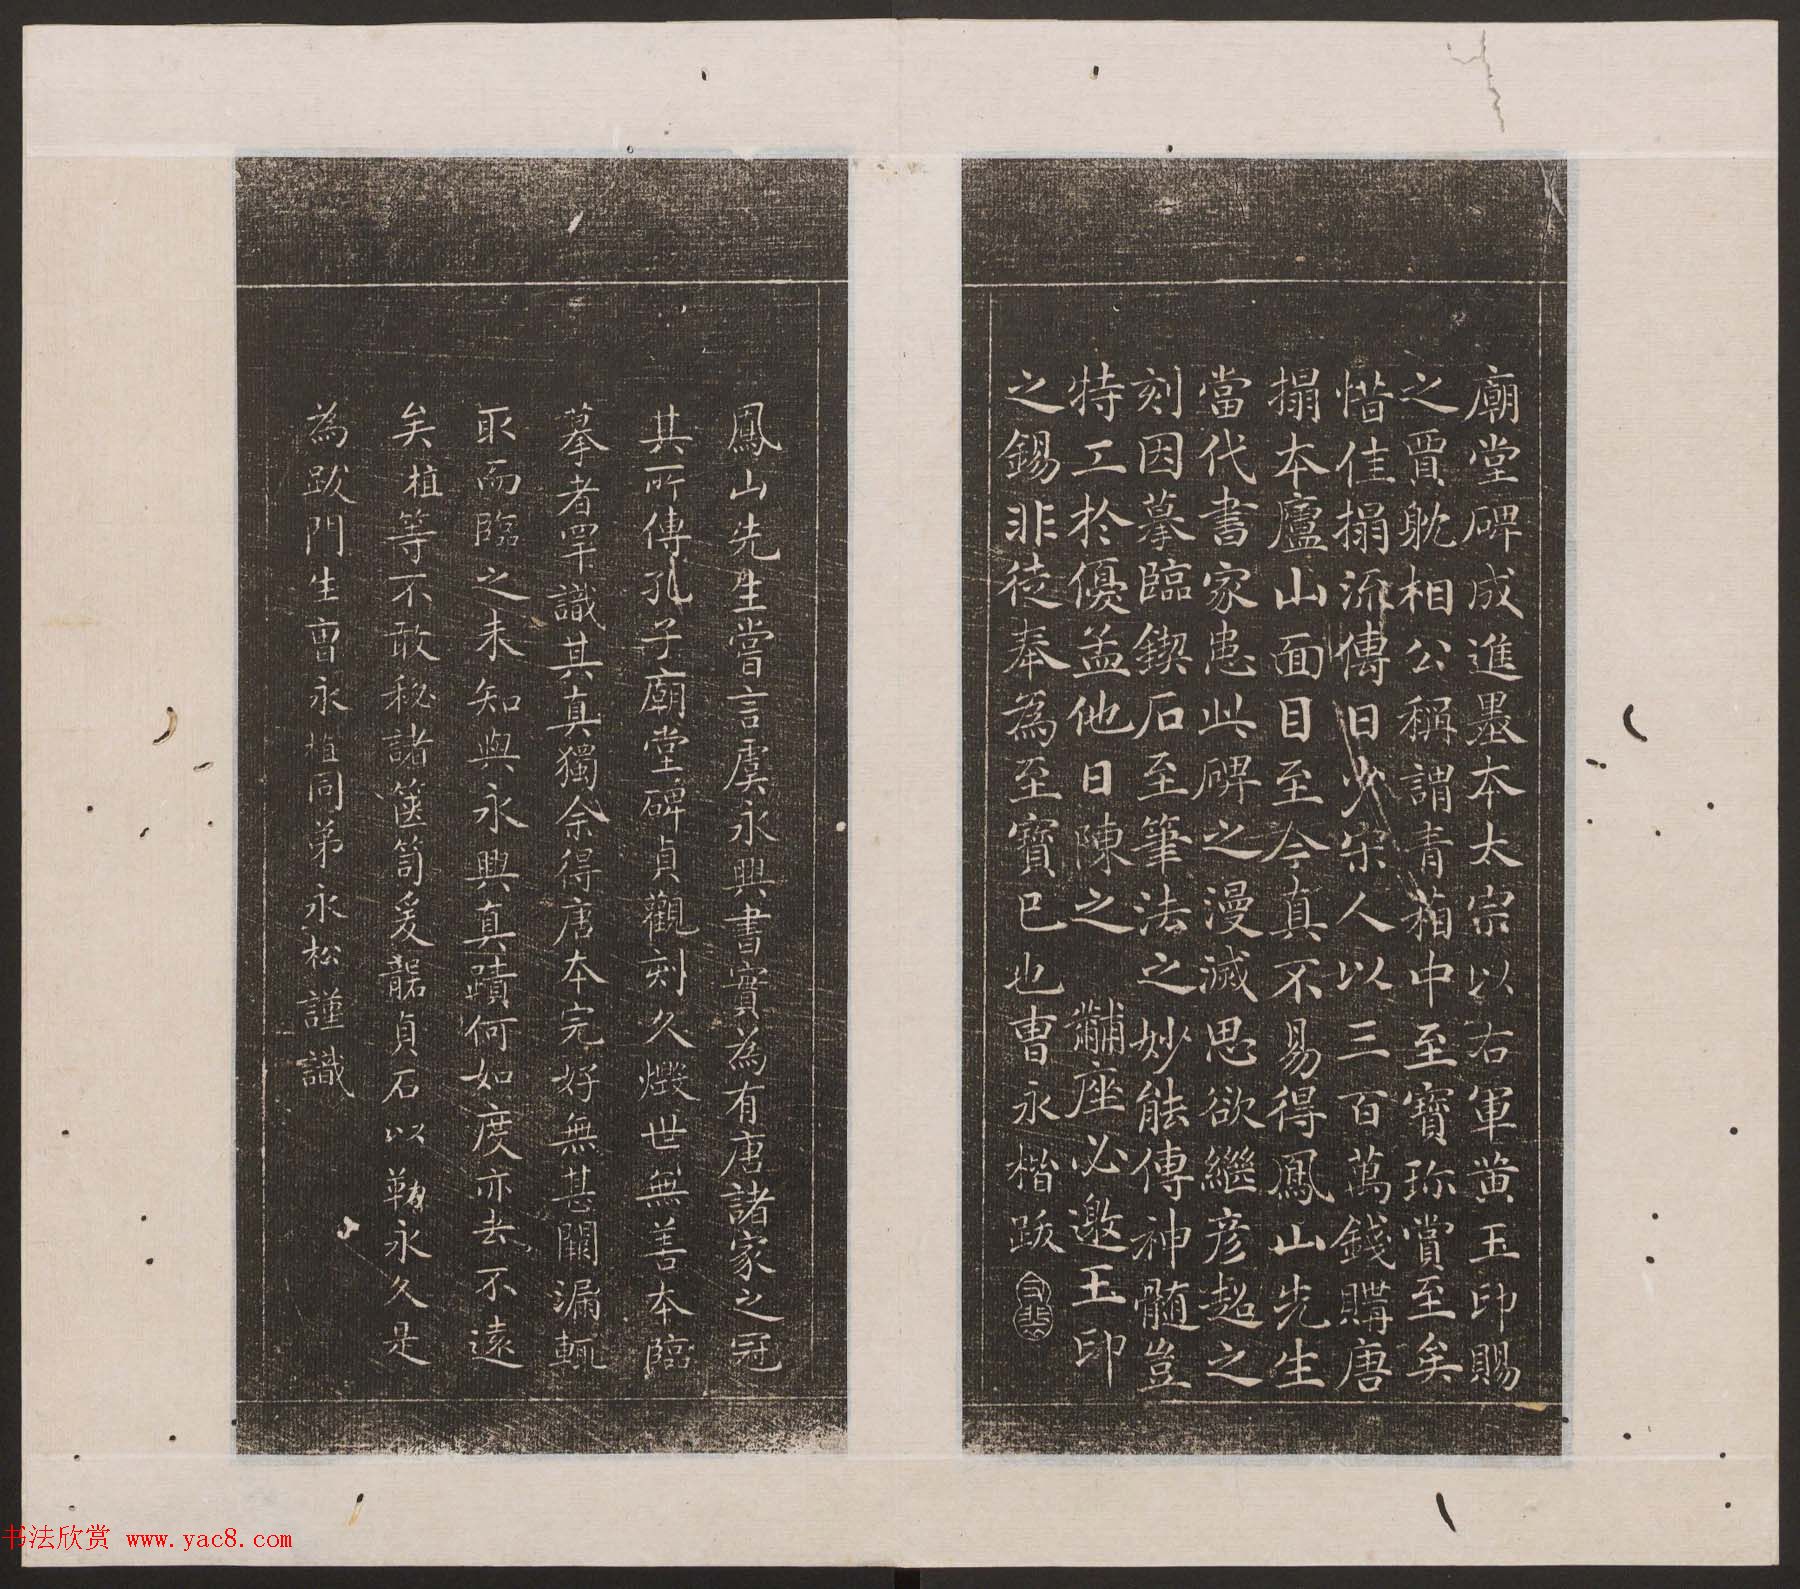 廟堂碑成進墨本太宗以右軍黃玉印賜
之賈躭相公稱謂青箱中至寶珎賞至矣
惜佳搨流傳日少宋人以三百萬錢購唐
搨本廬山面目至今真不易得鳳山先生
當代書家患此碑之漫滅思欲繼彥超之
刻因摹臨鍥石至筆法之妙能傳神髓豈
特工於優孟他日陳之 黼座必邀玉印
之錫非徒奉為至寶已也曹永楷跋
鳳山先生嘗言虞永興書實為有唐諸家之冠
其所傳孔子廟堂碑貞觀刻久燬世無善本臨
摹者罕識其真獨余得唐本完好無甚闕漏輒
取而臨之未知與永興真蹟何如度亦去不遠
矣植等不敢秘諸篋笥爰斵貞石以壽永久是
為跋門生曹永植同弟永松謹識
书法欣赏 www.yac8.com